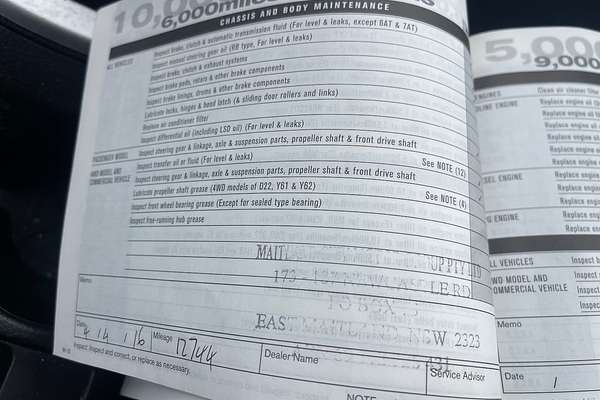 10,0
6,000mile
CHASSIS AND BODY MAINTENANCE
ALL VEHICLES
Inspect brake, clutch & automatic transmission fluid (For level & leaks, except 6AT & 7AT)
Inspect manual steering gear oil (RB type, For level & leaks)
Inspect brake, clutch & exhaust systems
Inspect brake pads, rotors & other brake components
Inspect brake linings, drums & other brake components
Lubricate locks, hinges & hood latch (& sliding door rollers and links)
Replace air conditioner filter
Inspect differential oil (including LSD oil) (For level & leaks)
PASSENGER MODEL
Inspect steering gear & linkage, axle & suspension parts, propeller shaft & front drive shaft
4WD MODEL AND COMMERCIAL VEHICLE
Inspect transfer oil or fluid (For level & leaks)
See NOTE (12)
Inspect steering gear & linkage, axle & suspension parts, propeller shaft & front drive shaft
Lubricate propeller shaft grease (4WD models of D22, Y61 & Y62)
See NOTE (4)
Inspect front wheel bearing grease (Except for sealed type bearing)
Inspect free-running hub grease
Memo
EAST MAITLAND NSW 2323
Date 4/4/16
Mileage 12744
Dealer Name
Service Advisor
Inspect: Inspect and correct, or replace as necessary.
NOTE
5,000
9,000
ENGINES
Clean air cleaner filter
Replace engine oil
Replace engine oil
Replace engine oil
Replace engine
Replace engine
Replace engine
Replace en
Replace en
Replace en
VEHICLES
Inspect b
WD MODEL AND
Inspect
OMMERCIAL VEHICLE
Inspec
Memo
Date /